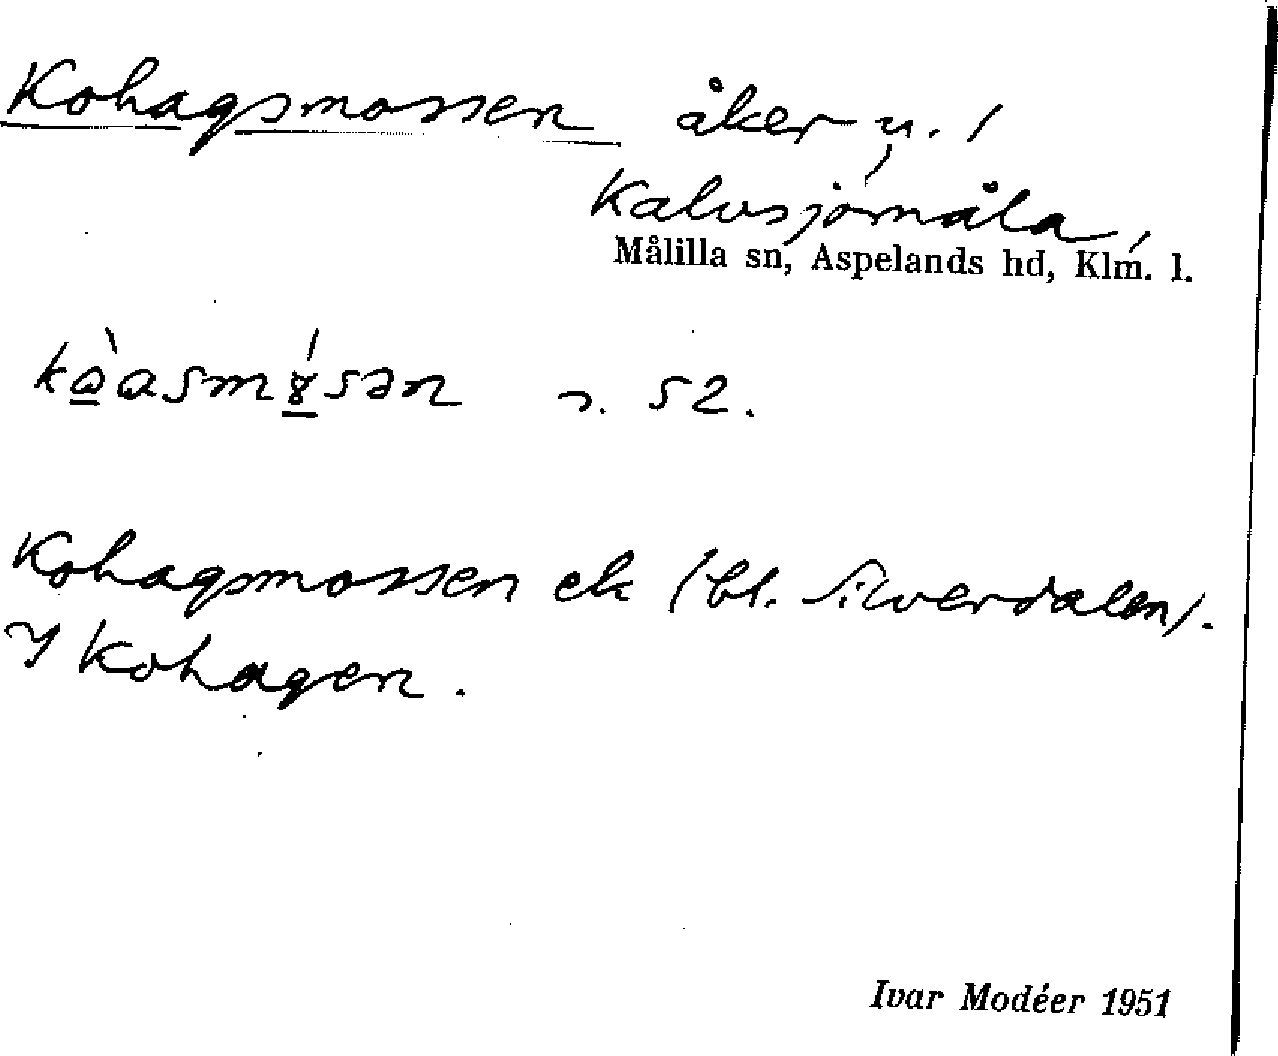 Kohagsmossen åker u. /
Kalvsjömåla,
Målilla sn, Aspelands hd, Klm. l.
s. 52.
Kohagsmossen ek (bl. Silverdalen).
I Kohagen.
Ivar Modéer 1951